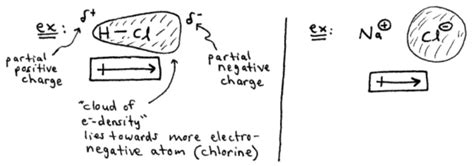 ex: δ+ H-Cl δ-
partial
positive
charge
partial
negative
charge
"cloud of
e⁻density"
lies towards more electro-
negative atom (chlorine)
ex: Na⊕ Cl⊖